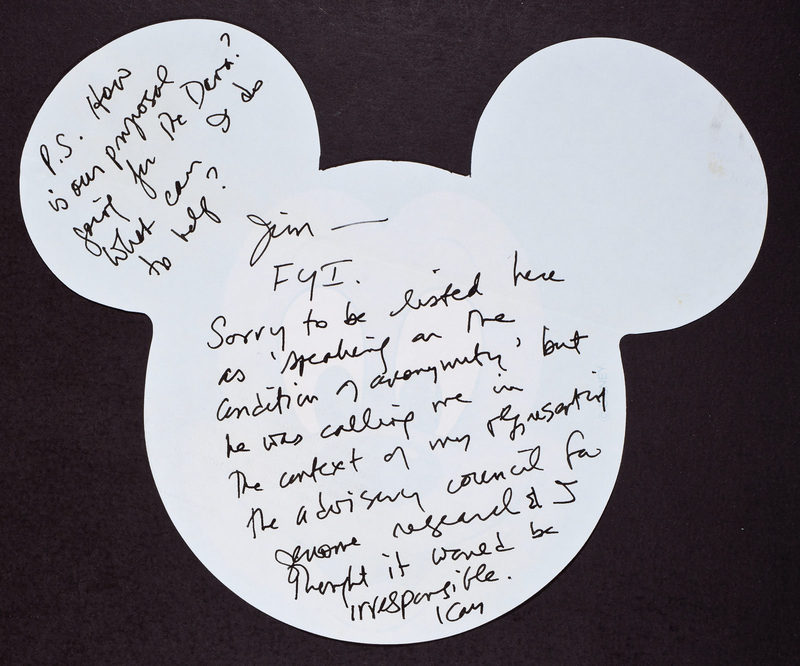 Jim —
FYI.
Sorry to be listed here
as 'speaking on the
condition of anonymity' but
he was calling me in
the context of my representing
the advisory council for
genome research & I
thought it would be
irresponsible.
P.S. How
is our proposal
going for the Dana?
What can I do
to help?